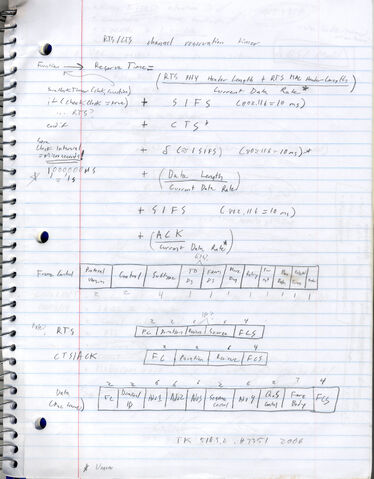 RTS/CTS channel reservation timer
Function → Reserve Time =
(RTS PHY Header Length + RTS MAC Header Length)
Current Data Rate*
+ SIFS (802.11b = 10 ms)
... RTS?
end if
+ CTS*
+ δ (≈ 1 SIFS) (802.11b = 10 ms) *
Clock Interval
= microseconds
1000000 µS
= 1s
+ (Data Length
Current Data Rate)
+ SIFS (802.11b = 10 ms)
+ (ACK
Current Data Rate*)
Frame Control
Protocol Version
Control
Subtype
To DS
From DS
More Frag
Retry
More Data
Order
2 2 4 1 1 1 1 1 1 1 1
RTS
FC Duration Receive Source FCS
2 2 6 6 4
CTS/ACK
FC Duration Receive FCS
2 2 6 4
Data
2 2 6 6 6 2 6 2 ? 4
FC Duration/ID Add1 Add2 Add3 Sequence Control Add4 QoS Control Frame Body FCS
TK 5103.2 .H3351 2006